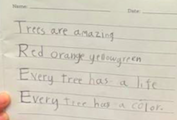 Name: Date:
Trees are amazing
Red orange yellow green
Every tree has a life
Every tree has a color.